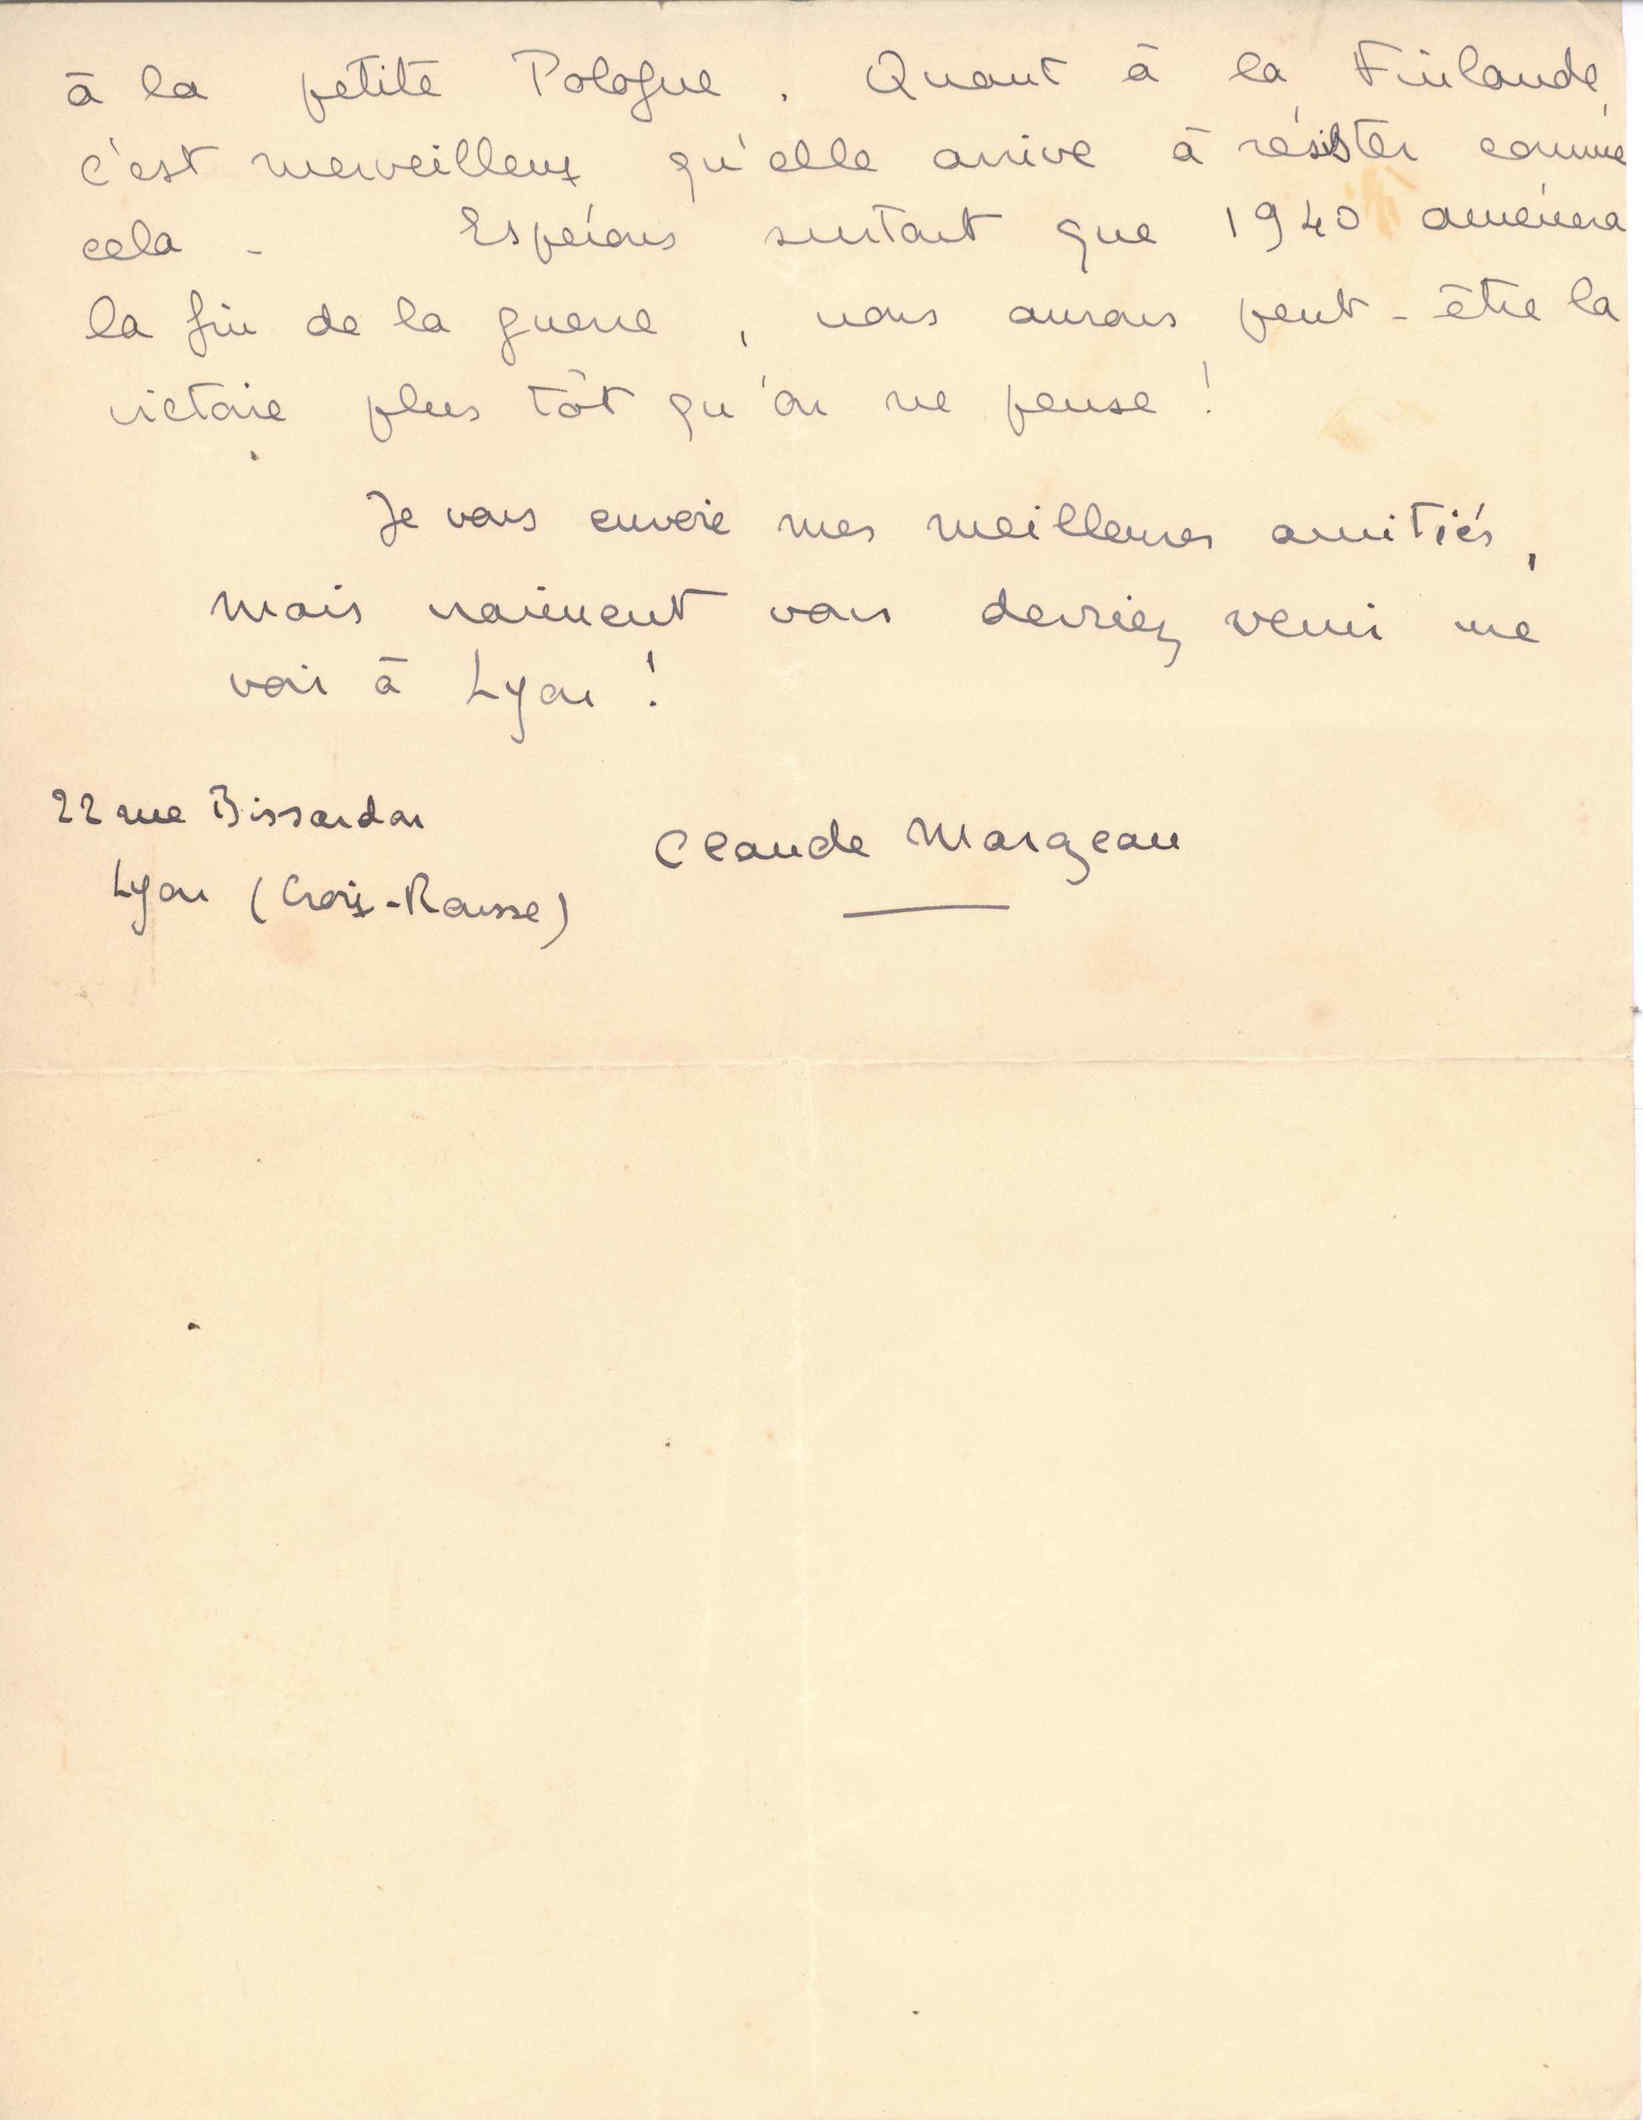 à la petite Pologne. Quant à la Finlande,
c'est merveilleux qu'elle arrive à résister comme
cela - Espérons surtout que 1940 amènera
la fin de la guerre, nous aurons peut-être la
victoire plus tôt qu'on ne pense !
Je vous envoie mes meilleures amitiés,
mais vraiment vous devriez venir me
voir à Lyon !
22 rue Bissardon
Lyon (Croix-Rousse)
Claude Margeau